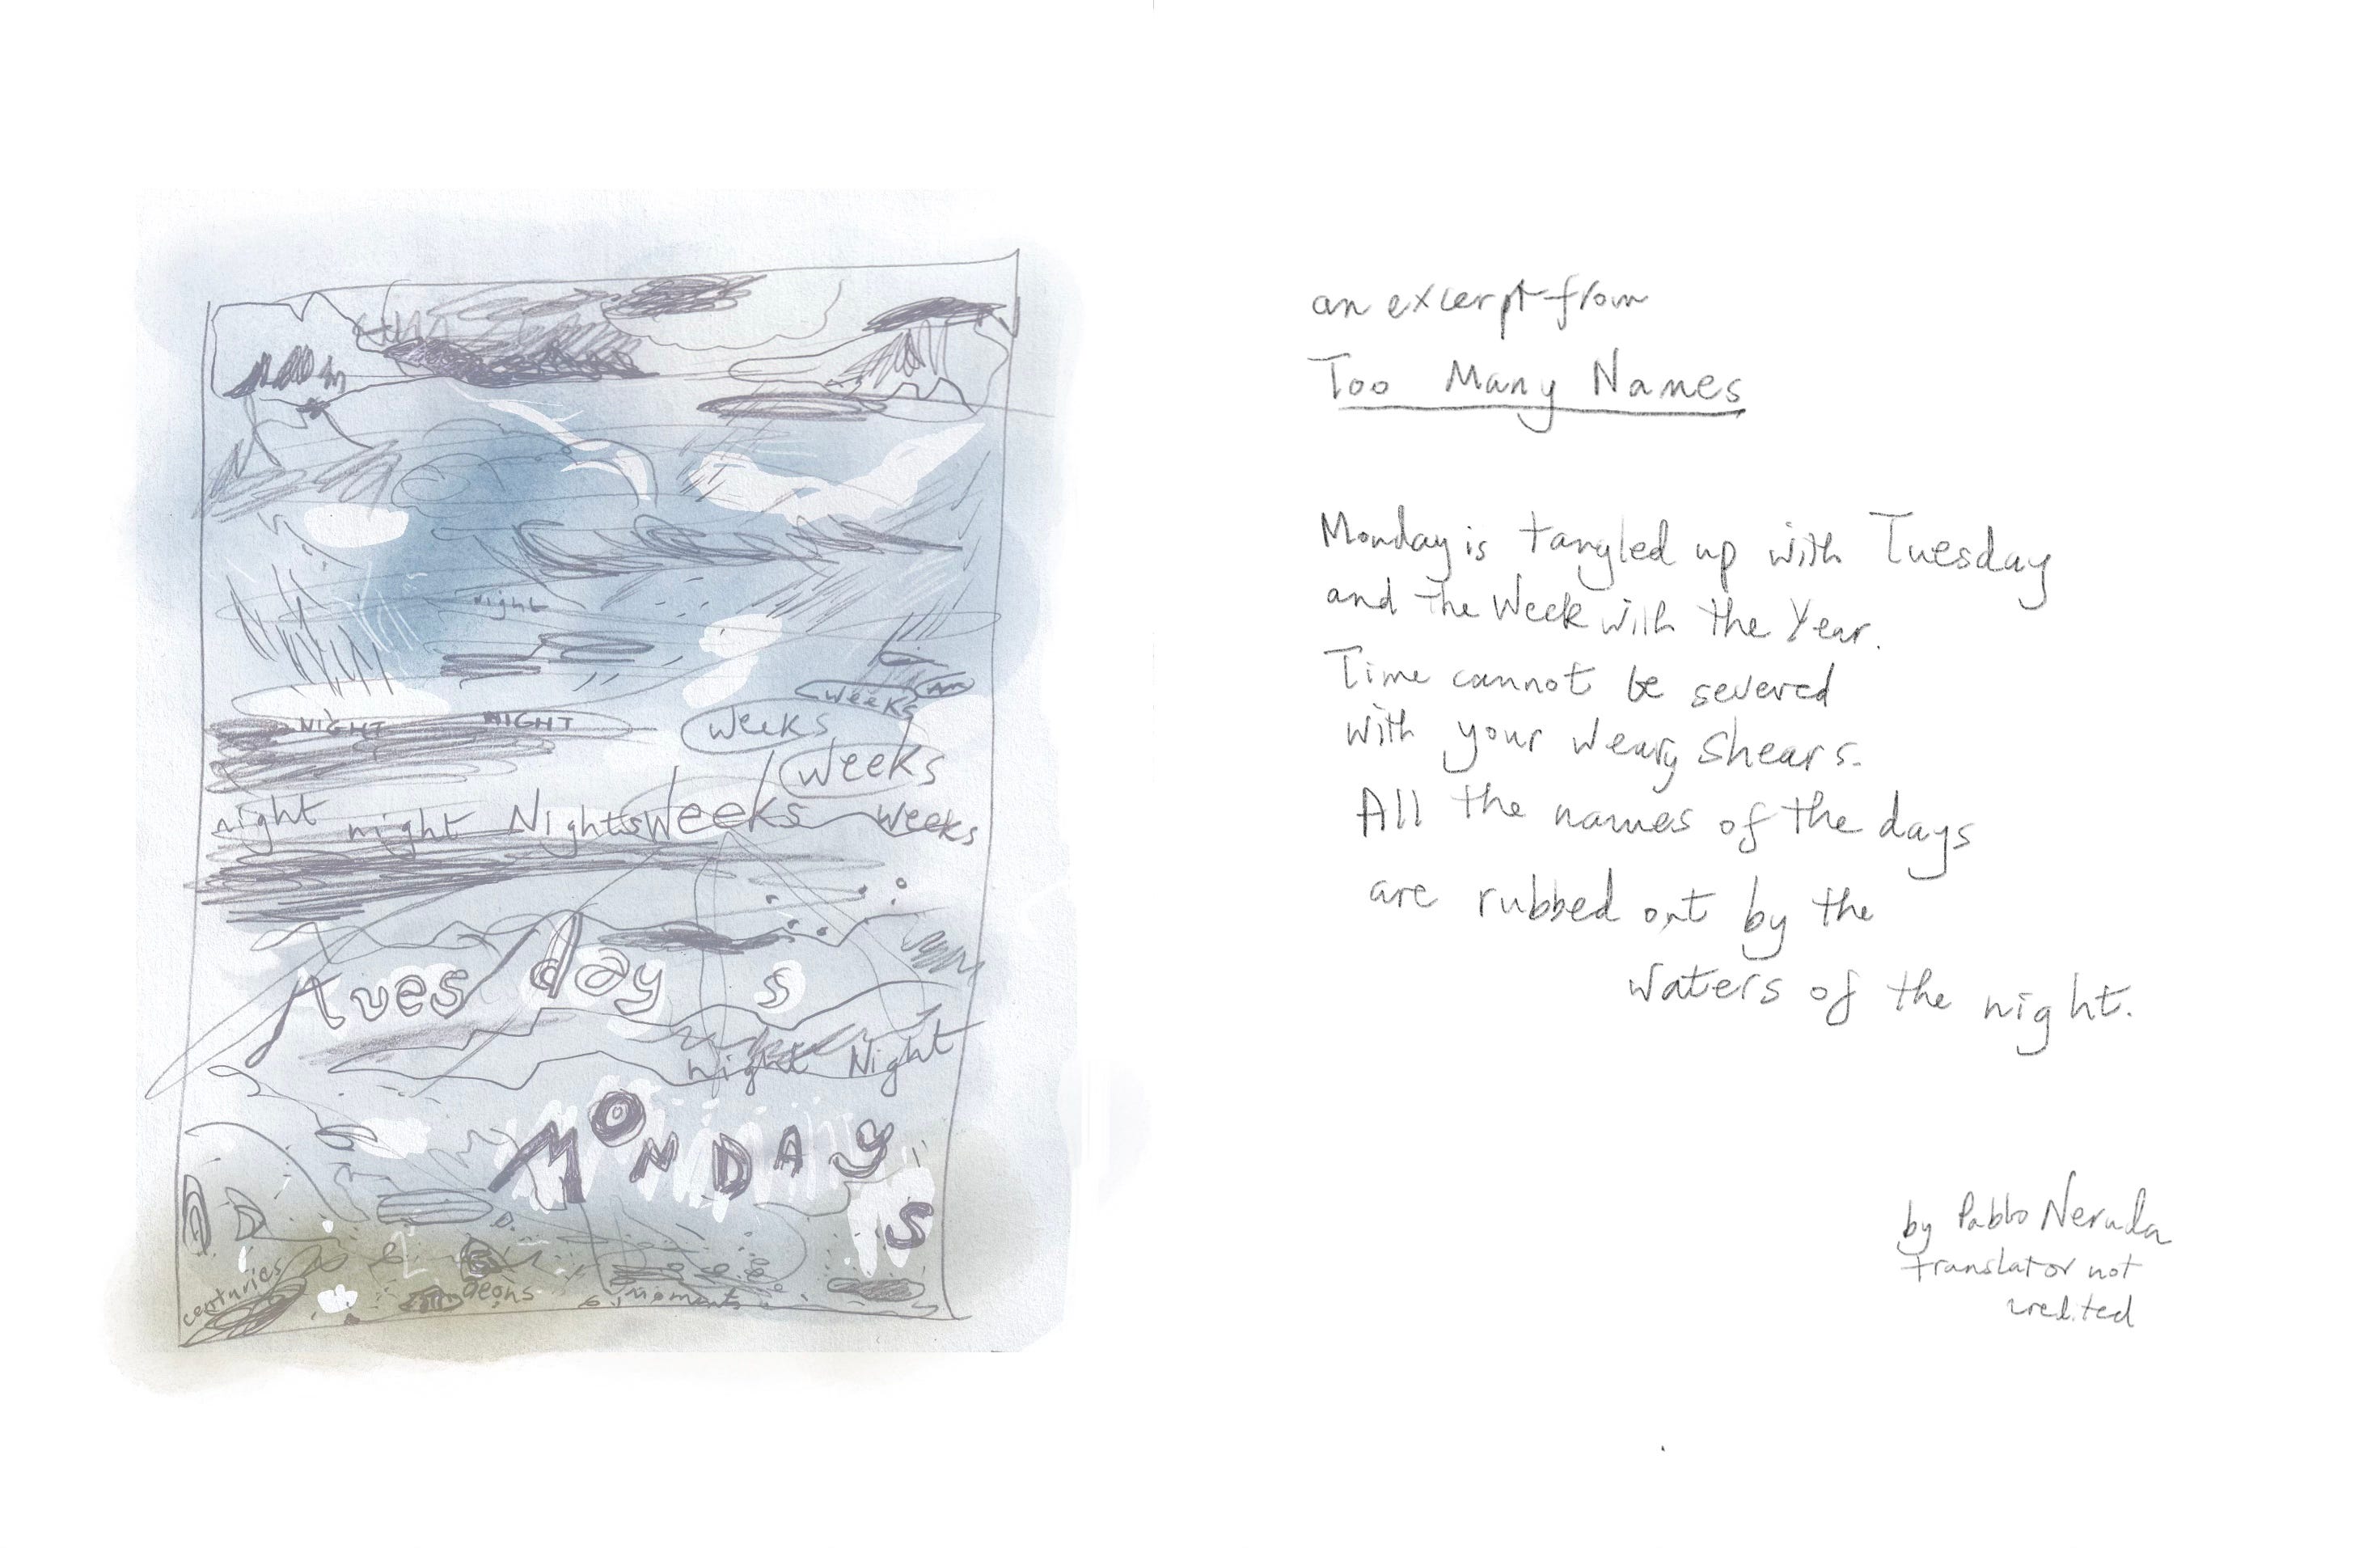 night
weeks
am
NIGHT NIGHT weeks
weeks
night night Nights weeks weeks
Tues day s
night Night
MONDAY
S
centuries aeons moments
an excerpt from
Too Many Names
Monday is tangled up with Tuesday
and the Week with the Year.
Time cannot be severed
with your weary shears.
All the names of the days
are rubbed out by the
waters of the night.
by Pablo Neruda
translator not
credited